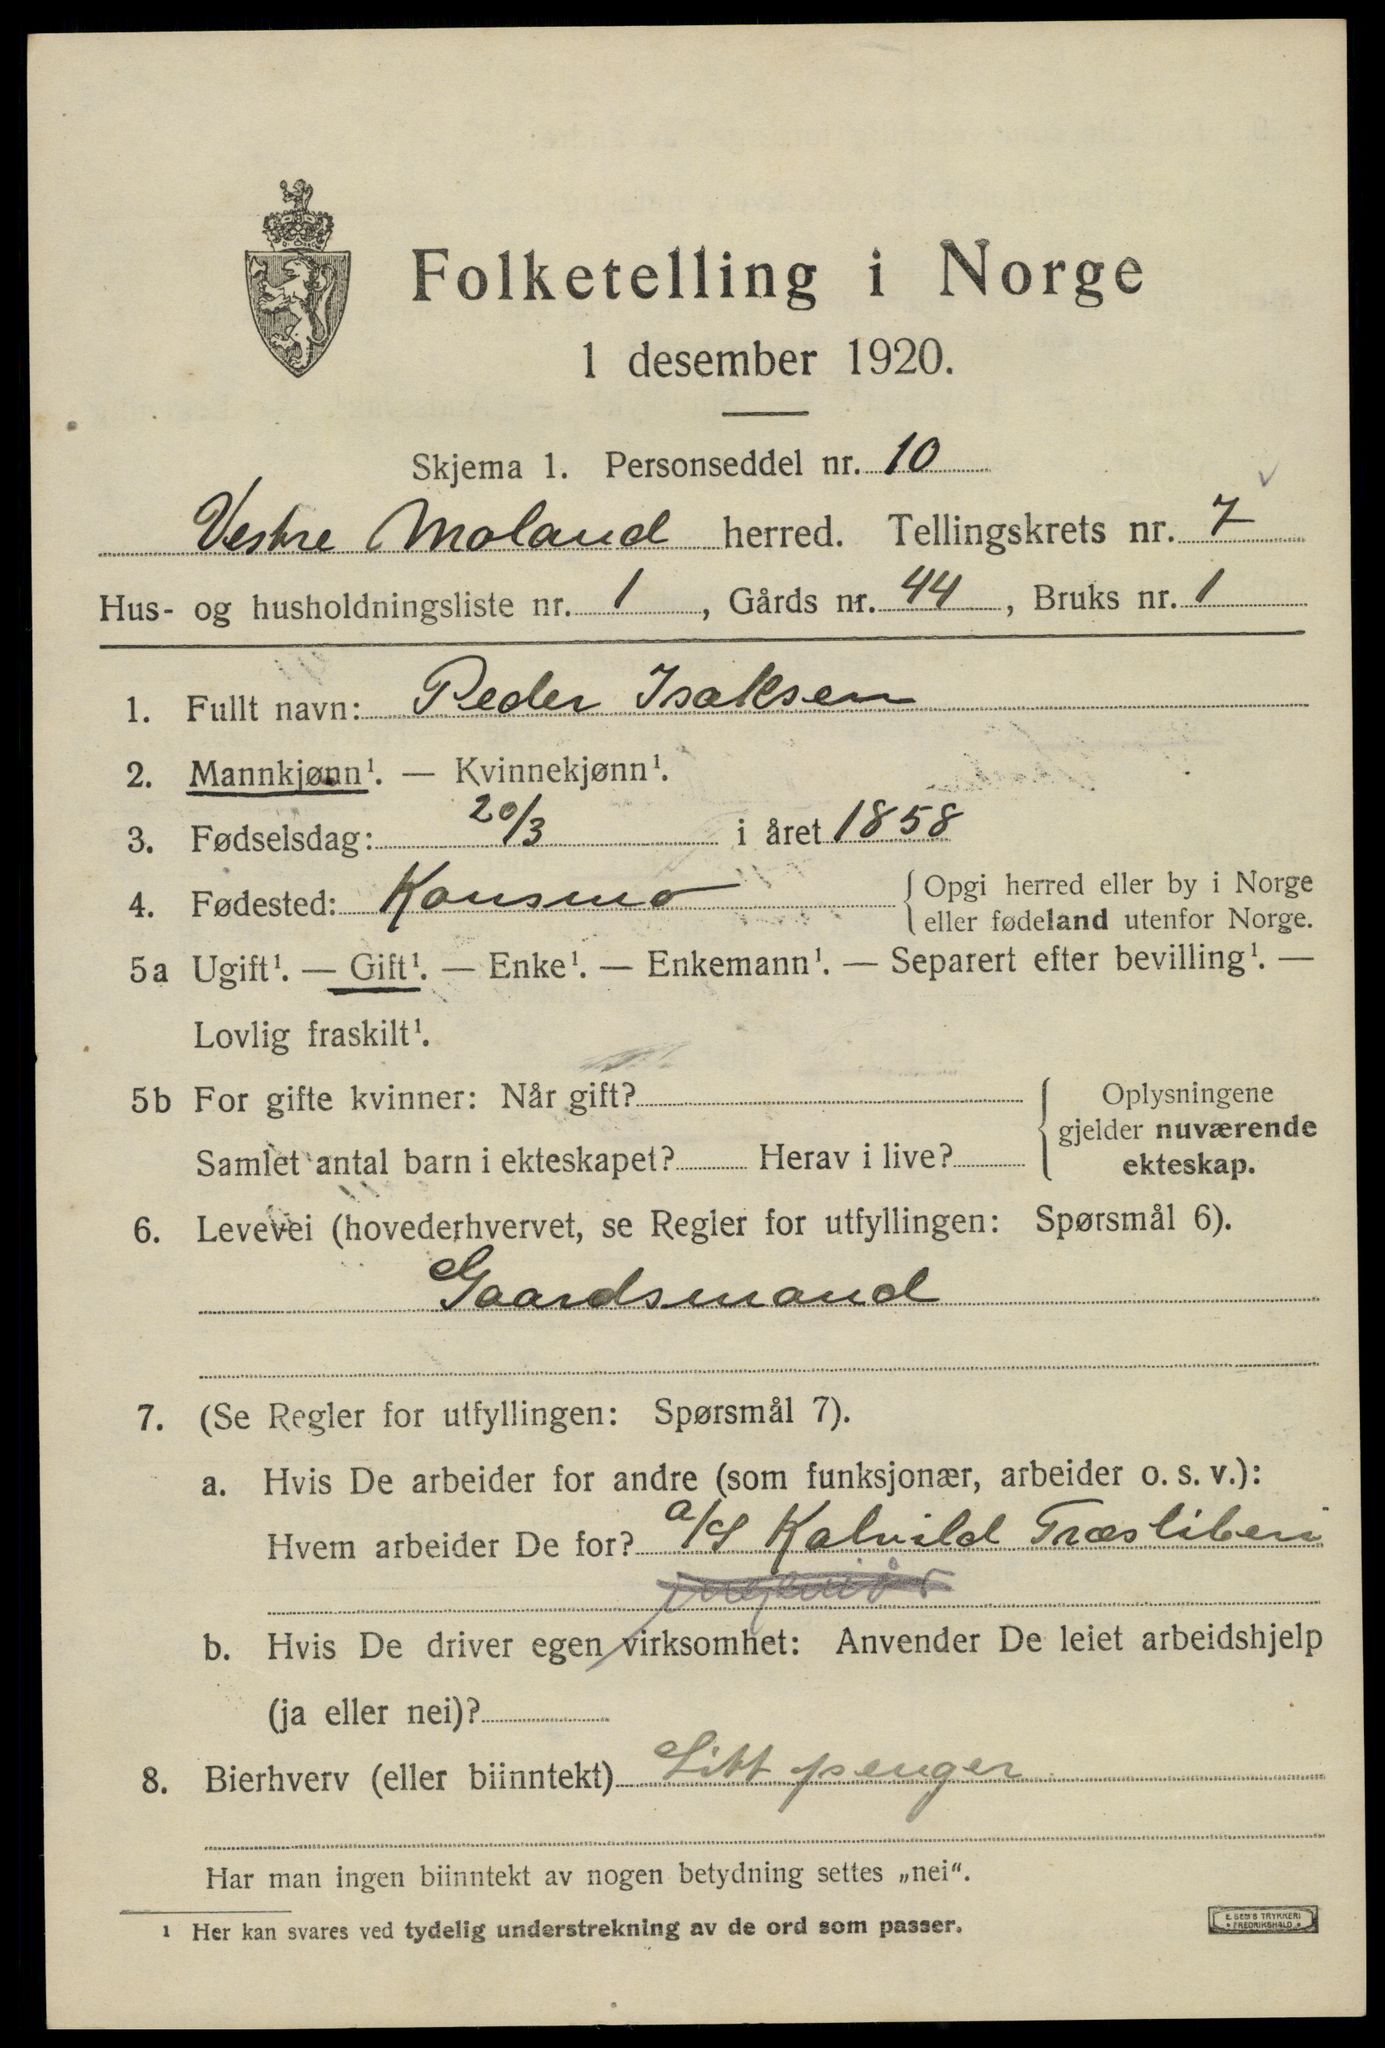 Folketelling i Norge
1 desember 1920.
Skjema 1. Personseddel nr. 10
Vestre Moland herred. Tellingskrets nr. 7
Hus- og husholdningsliste nr. 1, Gårds nr. 44, Bruks nr. 1
1. Fullt navn: Peder Isaksen
2. Mannkjønn¹. — Kvinnekjønn¹.
3. Fødselsdag: 20/3 i året 1858
4. Fødested: Konsmo { Opgi herred eller by i Norge
eller fødeland utenfor Norge.
5a Ugift¹. — Gift¹. — Enke¹. — Enkemann¹. — Separert efter bevilling¹. —
Lovlig fraskilt¹.
5b For gifte kvinner: Når gift?
Samlet antal barn i ekteskapet? Herav i live?
Oplysningene
gjelder nuværende
ekteskap.
6. Levevei (hovederhvervet, se Regler for utfyllingen: Spørsmål 6).
Gaardsmand
7. (Se Regler for utfyllingen: Spørsmål 7).
a. Hvis De arbeider for andre (som funksjonær, arbeider o. s. v.):
Hvem arbeider De for? a/s Kalvild Træsliberi
b. Hvis De driver egen virksomhet: Anvender De leiet arbeidshjelp
(ja eller nei)?
8. Bierhverv (eller biinntekt) Litt penger
Har man ingen biinntekt av nogen betydning settes „nei“.
¹ Her kan svares ved tydelig understrekning av de ord som passer.
E. SEM'S TRYKKERI
FREDRIKSHALD